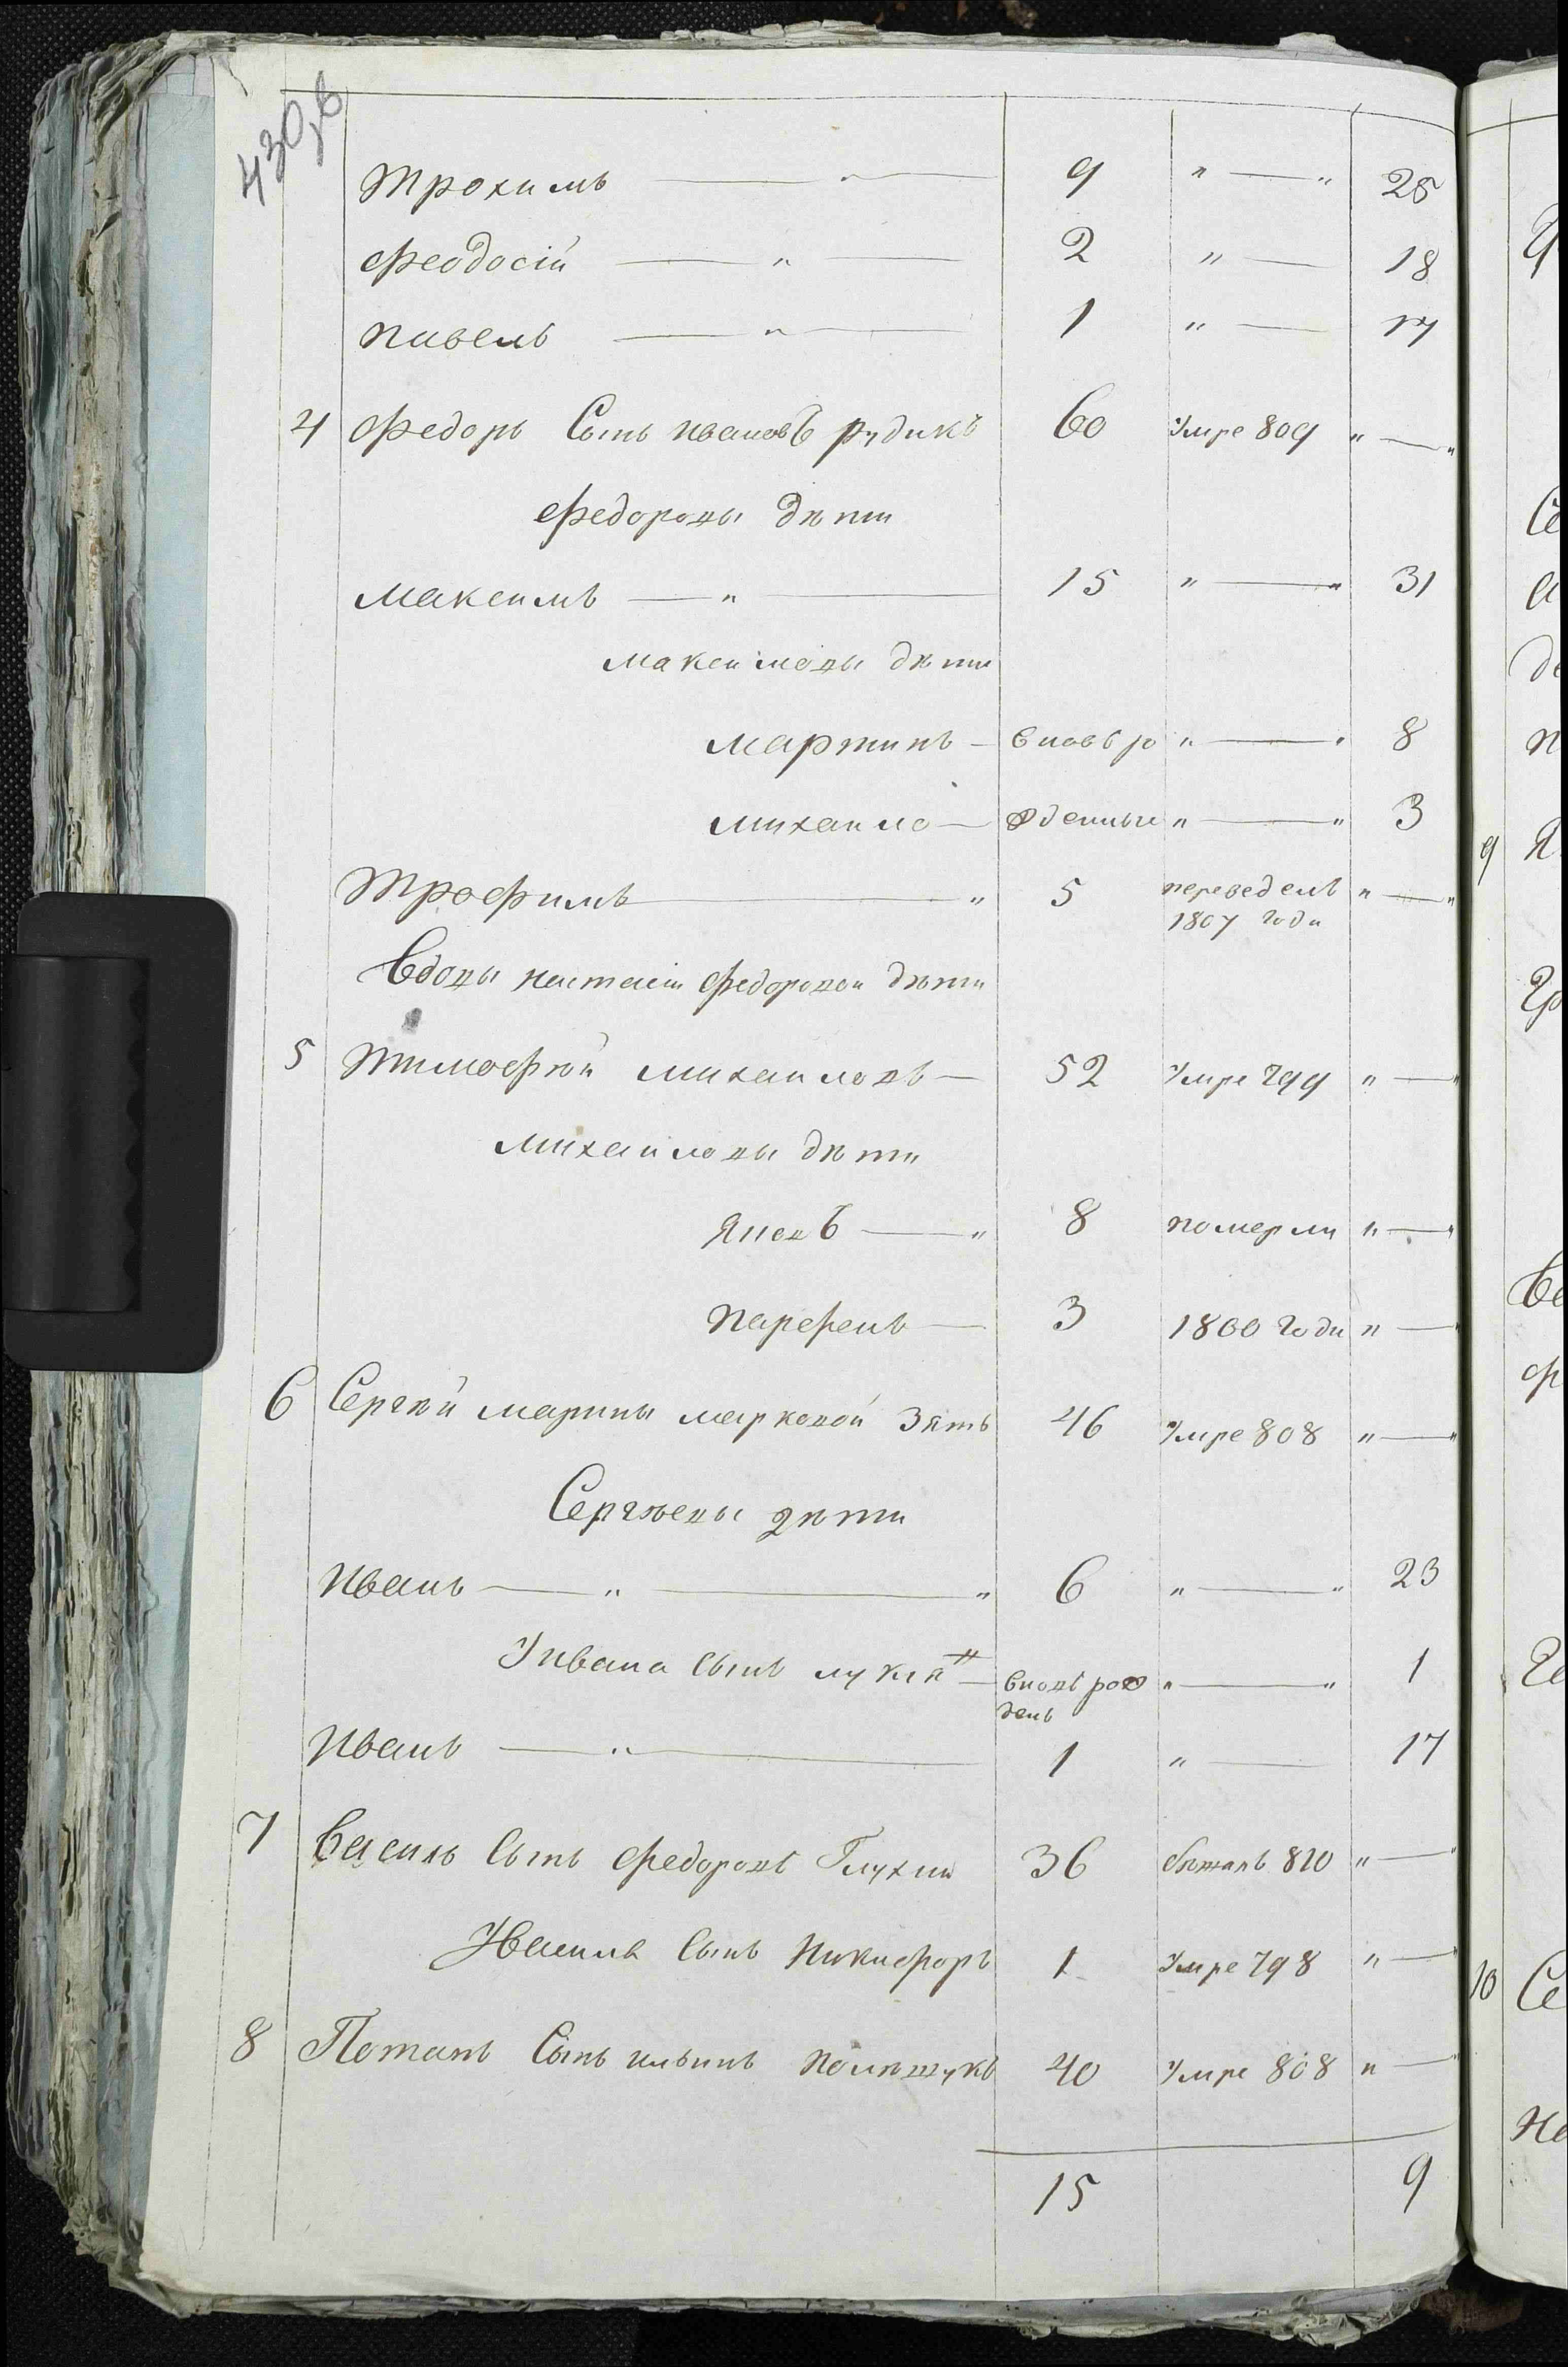 430,б
Трохимъ — " — 9 " — " 25
Феодосій — " — 2 " — 18
павелъ — " — 1 " — 17
4 Федоръ Сынъ ивановъ рудикъ 60 Умре 809 " — "
Федоровы дѣти
Максимъ — " — 15 " — " 31
максимовы дѣти
мартинъ — вновь ро " — " 8
михаило — жденные " — " 3
Трофимъ — " 5 переведенъ " — "
1807 года
Вдовы настасіи Федоровой дѣти
5 Тимофѣй михаиловъ — 52 Умре 799 " — "
михаиловы дѣти
Яковъ — " 8 померли " — "
парфенъ — 3 1800 года " — "
6 Сергѣй марины марковой Зять 46 Умре 808 " — "
Сергѣевы дѣти
иванъ — " — " 6 " — " 23
У ивана сынъ лукіянъ — вновь рож " — " 1
денъ
иванъ — " — 1 " — 17
7 Василь сынъ Федоровъ Глухий 36 бѣжалъ 810 " — "
У Василя Сынъ Никифоръ 1 Умре 798 " — "
8 Потапъ Сынъ ильинъ полѣщукъ 40 Умре 808 " — "
15 9
9
10